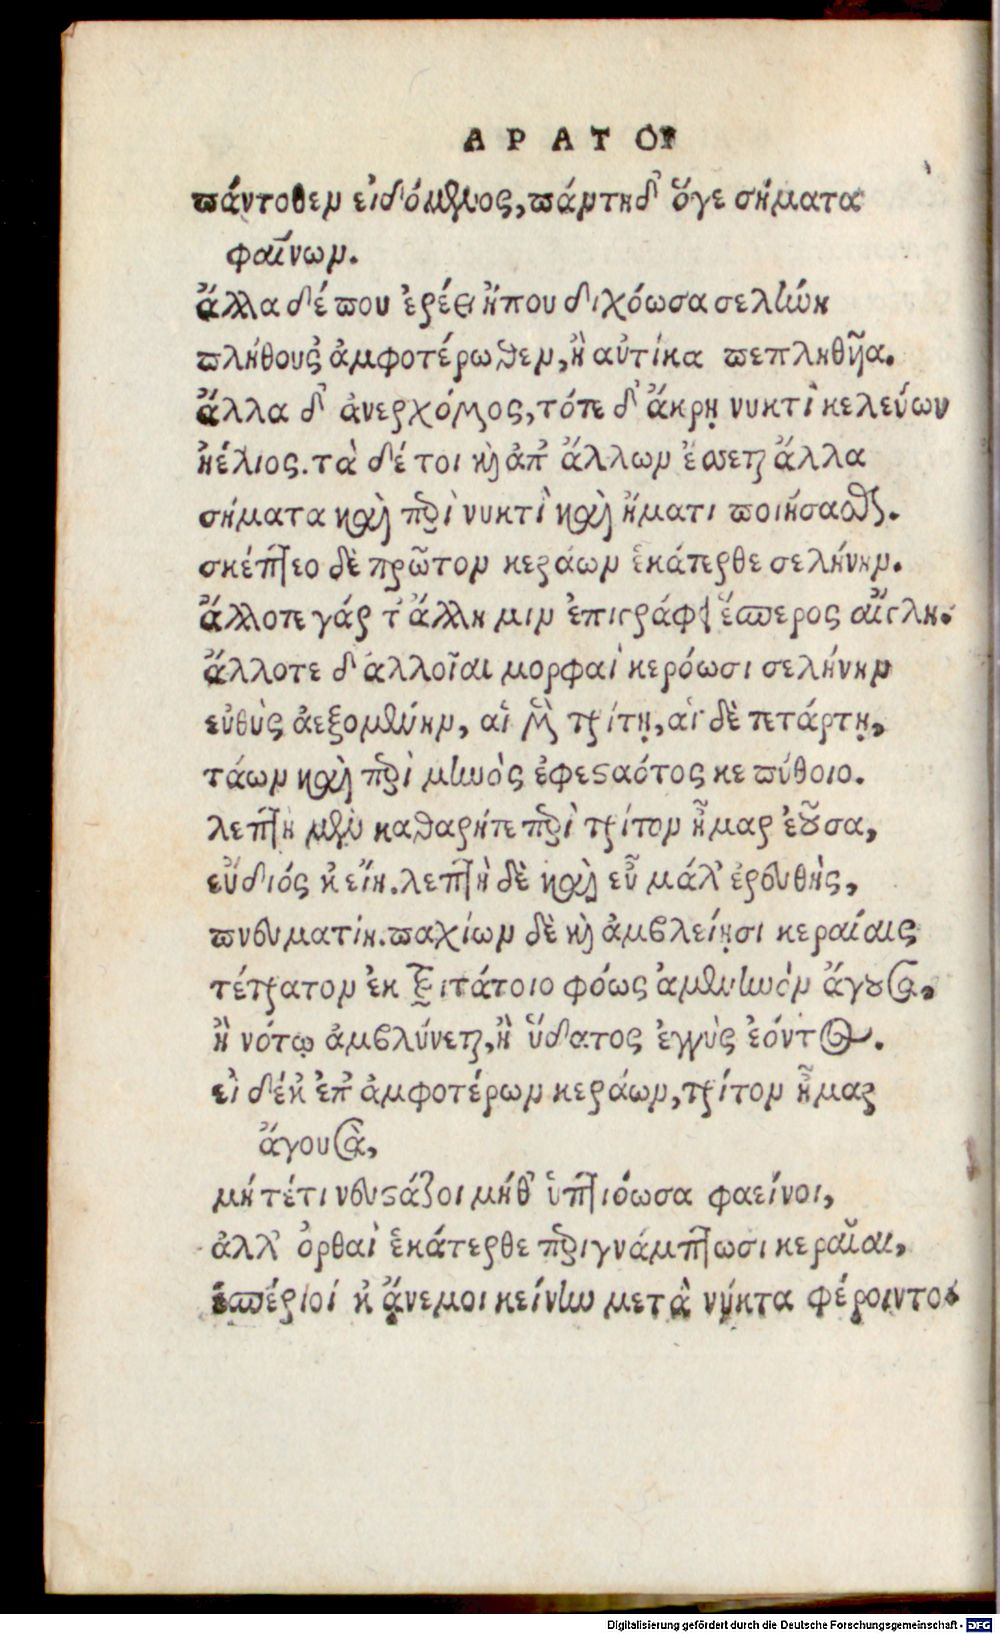 ΑΡΑΤΟΥ
πάντοθεν εἰδόμενος, πάντη δ' ὅγε σήματα
φαίνων.
ἄλλα δέ που ἐρέει ἤπου διχόωσα σελήνη
πλήθους ἀμφοτέρωθεν, ἢ αὐτίκα πεπληθῦα.
ἄλλα δ' ἀνερχόμενος, τότε δ' ἄκρῃ νυκτὶ κελεύων
ἠέλιος. τὰ δέ τοι καὶ ἀπ' ἄλλων ἔσπεται ἄλλα
σήματα καὶ περὶ νυκτὶ καὶ ἤματι ποιήσασθαι.
σκέπτεο δὲ πρῶτον κεράων ἑκάτερθε σελήνην.
ἄλλοτε γάρ τ' ἄλλη μιν ἐπιγράφει ἕσπερος αἴγλη.
ἄλλοτε δ' ἀλλοῖαι μορφαὶ κερόωσι σελήνην
εὐθὺς ἀεξομένην, αἱ μὲν τρίτῃ, αἱ δὲ τετάρτῃ,
τάων καὶ περὶ μηνὸς ἐφεσταότος κε πύθοιο.
λεπτὴ μὲν καθαρήτε περὶ τρίτον ἦμαρ ἐοῦσα,
εὔδιός κ' εἴη. λεπτὴ δὲ καὶ εὖ μάλ' ἐρευθὴς,
πνευματίη. παχίων δὲ καὶ ἀμβλείῃσι κεραίαις
τέτρατον ἐκ τριτάτοιο φόως ἀμενηνὸν ἄγουσα,
ἢ νότῳ ἀμβλύνεται, ἢ ὕδατος ἐγγὺς ἐόντος.
εἰ δέκ' ἐπ' ἀμφοτέρων κεράων, τρίτον ἦμαρ
ἄγουσα,
μήτέτι νευστάζοι μήθ' ὑπτιόωσα φαείνοι,
ἀλλ' ὀρθαὶ ἑκάτερθε περιγνάμπτωσι κεραῖαι,
ἑσπέριοί κ' ἄνεμοι κείνην μετὰ νύκτα φέροιντο.
Digitalisierung gefördert durch die Deutsche Forschungsgemeinschaft - DFG